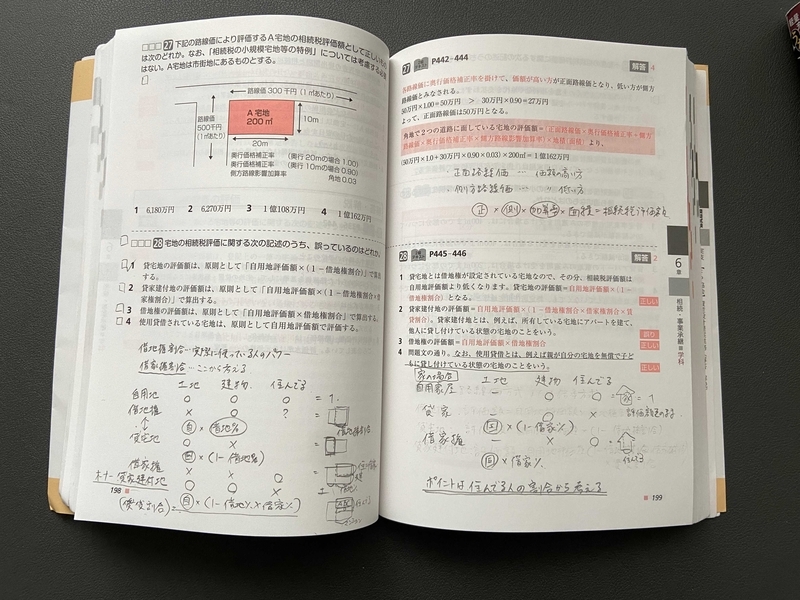 27 下記の路線価により評価するA宅地の相続税評価額として正しいもの
は次のどれか。なお、「相続税の小規模宅地等の特例」については考慮する必要
はない。A宅地は市街地にあるものとする。
路線価 300 千円 (1㎡あたり)
路線価
500千円
(1㎡あたり)
A 宅地
200 ㎡
10m
20m
奥行価格補正率 (奥行 20mの場合 1.00)
奥行価格補正率 (奥行 10mの場合 0.90)
側方路線影響加算率 角地 0.03
1 6,180万円 2 6,270万円 3 1億108万円 4 1億162万円
28 宅地の相続税評価に関する次の記述のうち、誤っているのはどれか。
1 貸宅地の評価額は、原則として「自用地評価額×(1-借地権割合)」で算出
する。
2 貸家建付地の評価額は、原則として「自用地評価額×(1-借地権割合×借
家権割合)」で算出する。
3 借地権の評価額は、原則として「自用地評価額×借地権割合」で算出する。
4 使用貸借されている宅地は、原則として自用地評価額で評価する。
借地権割合…実際に使っている人のパワー
借家権割合…ここから考える
土地 建物 住んでる
自用地 ○ ○ ○ = 1.
借地権 × ○ ?
自 × 借地%
貸宅地 ○ × ×
自 × (1-借地%)
借家権 × × ○
貸家建付地 ○ ○ ×
自 × (1-借地%×借家%)
198
27 P442-444 解答 4
各路線価に奥行価格補正率を掛けて、価額が高い方が正面路線価となり、低い方が側方
路線価とみなされる。
50万円×1.00=50万円 > 30万円×0.90=27万円
よって、正面路線価は50万円となる。
角地で2つの道路に面している宅地の評価額=(正面路線価×奥行価格補正率+側方
路線価×奥行価格補正率×側方路線影響加算率)×地積(面積)より、
(50万円×1.0+30万円×0.90×0.03)×200㎡=1億162万円
・正面路線価 … 価額の高い方
・側方路線価 … 〃 低い方
正 × 側 × 加算率 × 面積 = 相続税評価額
28 P445-446 解答 2
1 貸宅地とは借地権が設定されている宅地なので、その分、相続税評価額は
自用地評価額より低くなります。貸宅地の評価額=自用地評価額×(1-
借地権割合)となる。
正しい
2 貸家建付地の評価額=自用地評価額×(1-借地権割合×借家権割合×賃
貸割合)。貸家建付地とは、例えば、所有している宅地にアパートを建て、
他人に貸し付けている状態の宅地のことをいう。
誤り
3 借地権の評価額=自用地評価額×借地権割合
正しい
4 問題文の通り。なお、使用貸借とは、例えば親が自分の宅地を無償で子ど
もに貸し付けている状態の宅地のことをいう。
正しい
家の場合
土地 建物 住んでる
自用家屋 - ○ ○ = 1
貸家 - ○ ×
× (1-借家%)
借家権 - × ○
× 借家%
住んでる
ポイントは住んでる人の割合から考える
6
章
相続・事業承継 学科
199